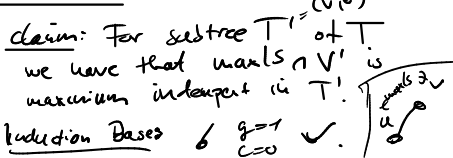 claim: For subtree T' = (V', E') of T
we have that maxIS ∩ V' is
maximum indepent in T'.
Induction Bases g=1 ✓.
c=0
maxIS ✓
u